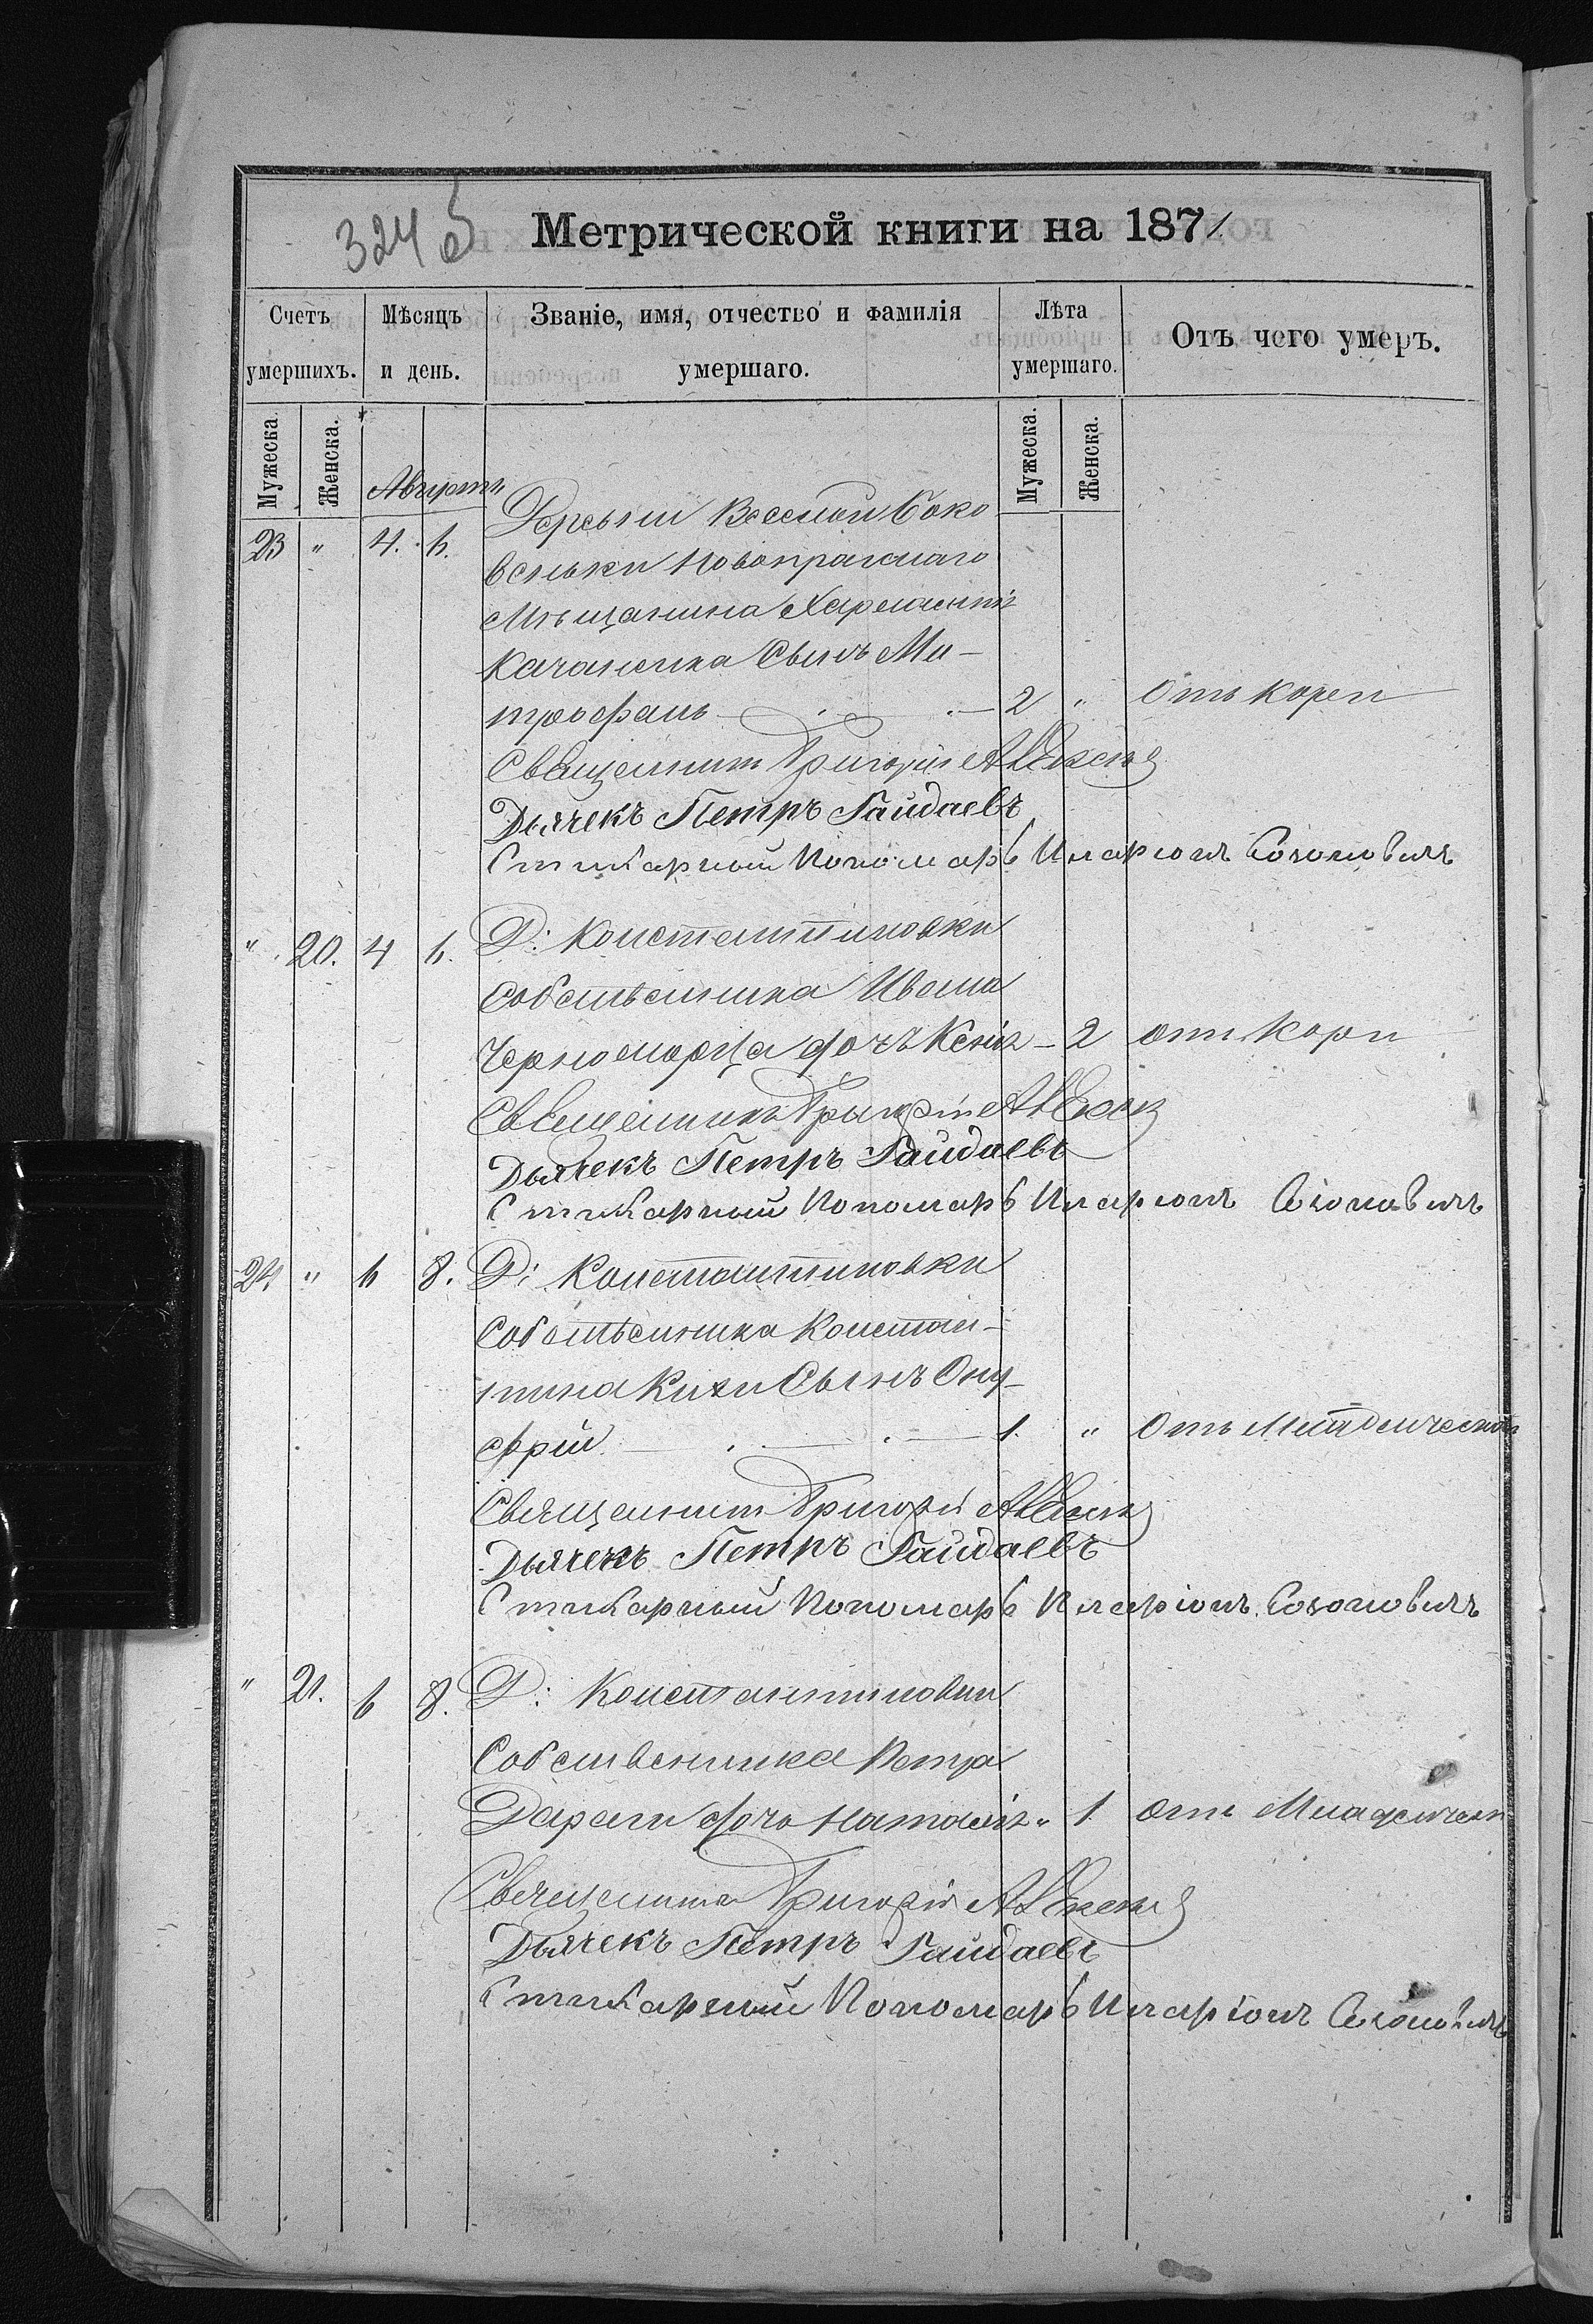 324 б
Метрической книги на 1871
Счетъ умершихъ.
Мѣсяцъ и день.
Званіе, имя, отчество и фамилія умершаго.
Лѣта умершаго.
Отъ чего умеръ.
Мужеска.
Женска.
Мужеска.
Женска.
Августъ
23 " 4. 6. Деревни Веселой Боко
веньки Новопражскаго
Мѣщанина
сынъ Ми-
трофанъ — 2 " Отъ кори
Священникъ Григорій
Дьячекъ Петръ Гайдаевъ
Стихарный Пономарь Иларіонъ Созоновичъ
" 20. 4 6. Д: Константиновки
Собственника Ивана
Черноморца дочь Ксенія — 2 отъ кори
Священникъ Григорій
Дьячекъ Петръ Гайдаевъ
Стихарный Пономарь Иларіонъ Созоновичъ
24 " 6 8. Д: Константиновки
Собственника Констан-
тина сынъ Ону-
фрій — 1. " Отъ Младенческой
Священникъ Григорій
Дьячекъ Петръ Гайдаевъ
Стихарный Пономарь Иларіонъ Созоновичъ
" 21. 6 8. Д: Константиновки
Собственника Петра
дочь Наталія " 1. отъ Младенческ
Священникъ Григорій
Дьячекъ Петръ Гайдаевъ
Стихарный Пономарь Иларіонъ Созоновичъ